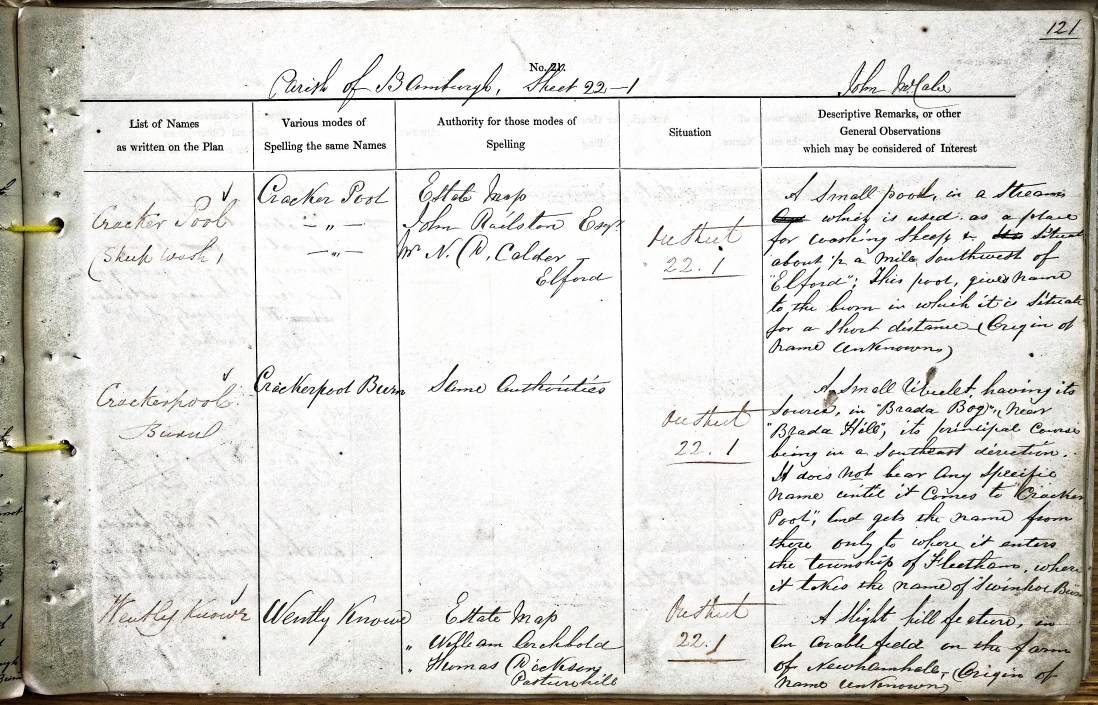 121
No. 21.
Parish of Bamburgh, Sheet 22-1 John McCabe
List of Names
as written on the Plan
Various modes of
Spelling the same Names
Authority for those modes of
Spelling
Situation
Descriptive Remarks, or other
General Observations
which may be considered of Interest
Cracker Pool
(Sheep wash)
Cracker Pool
- „ -
- „ -
Estate Map
John Railston Esqr.
Mr. N. Calder
Elford
On Sheet
22.1
A Small pool, in a Stream
which is used as a place
for washing Sheep & Situate
about 1/2 a mile Southwest of
"Elford"; This pool, gives name
to the burn in which it is Situate
for a Short distance (Origin of
name unknown)
Crackerpool
Burn
Crackerpool Burn
Same Authorities
On Sheet
22.1
A Small rivulet, having its
Source, in "Brada Bog", near
"Brada Hill", its principal Course
being in a Southeast direction.
It does not bear any Specific
name until it Comes to "Cracker
Pool", and gets the name from
there only to where it enters
the township of Fleetham, where
it takes the name of Swinhoe Burn
Wently Knowe
Wently Knowe
Estate Map
„ William Archbold
„ Thomas Dickson
Pasturehill
On Sheet
22.1
A Slight hill feature, in
an arable field on the farm
of Newhamhall, (Origin of
name unknown)